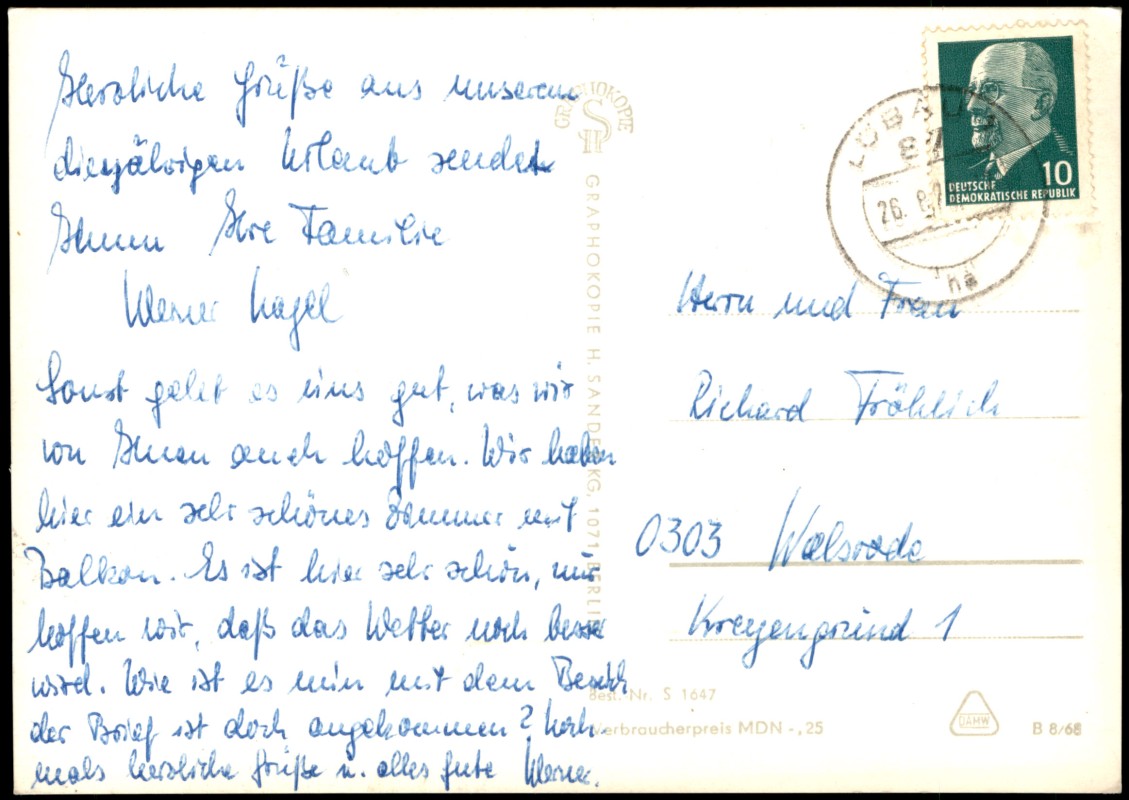 Herzliche Grüße aus unserem
diesjährigen Urlaub sendet
Ihnen Ihre Familie
Werner Nagel
Sonst geht es uns gut, was wir
von Ihnen auch hoffen. Wir haben
hier ein sehr schönes Zimmer mit
Balkon. Es ist hier sehr schön, nur
hoffen wir, daß das Wetter noch besser
wird. Wie ist es nun mit dem Besuch
der Brief ist doch angekommen? Noch-
mals herzliche Grüße u. alles Gute Werner.
GRAPHOKOPIE
GRAPHOKOPIE H. SANDER KG, 1071 BERLIN
Best. Nr. S 1647
Verbraucherpreis MDN -,25
DEUTSCHE
DEMOKRATISCHE REPUBLIK
10
LÖBAU
26. 8.
ha
Herrn und Frau
Richard Fröhlich
0303 Walsrode
Kreyengrund 1
DAMW
B 8/68